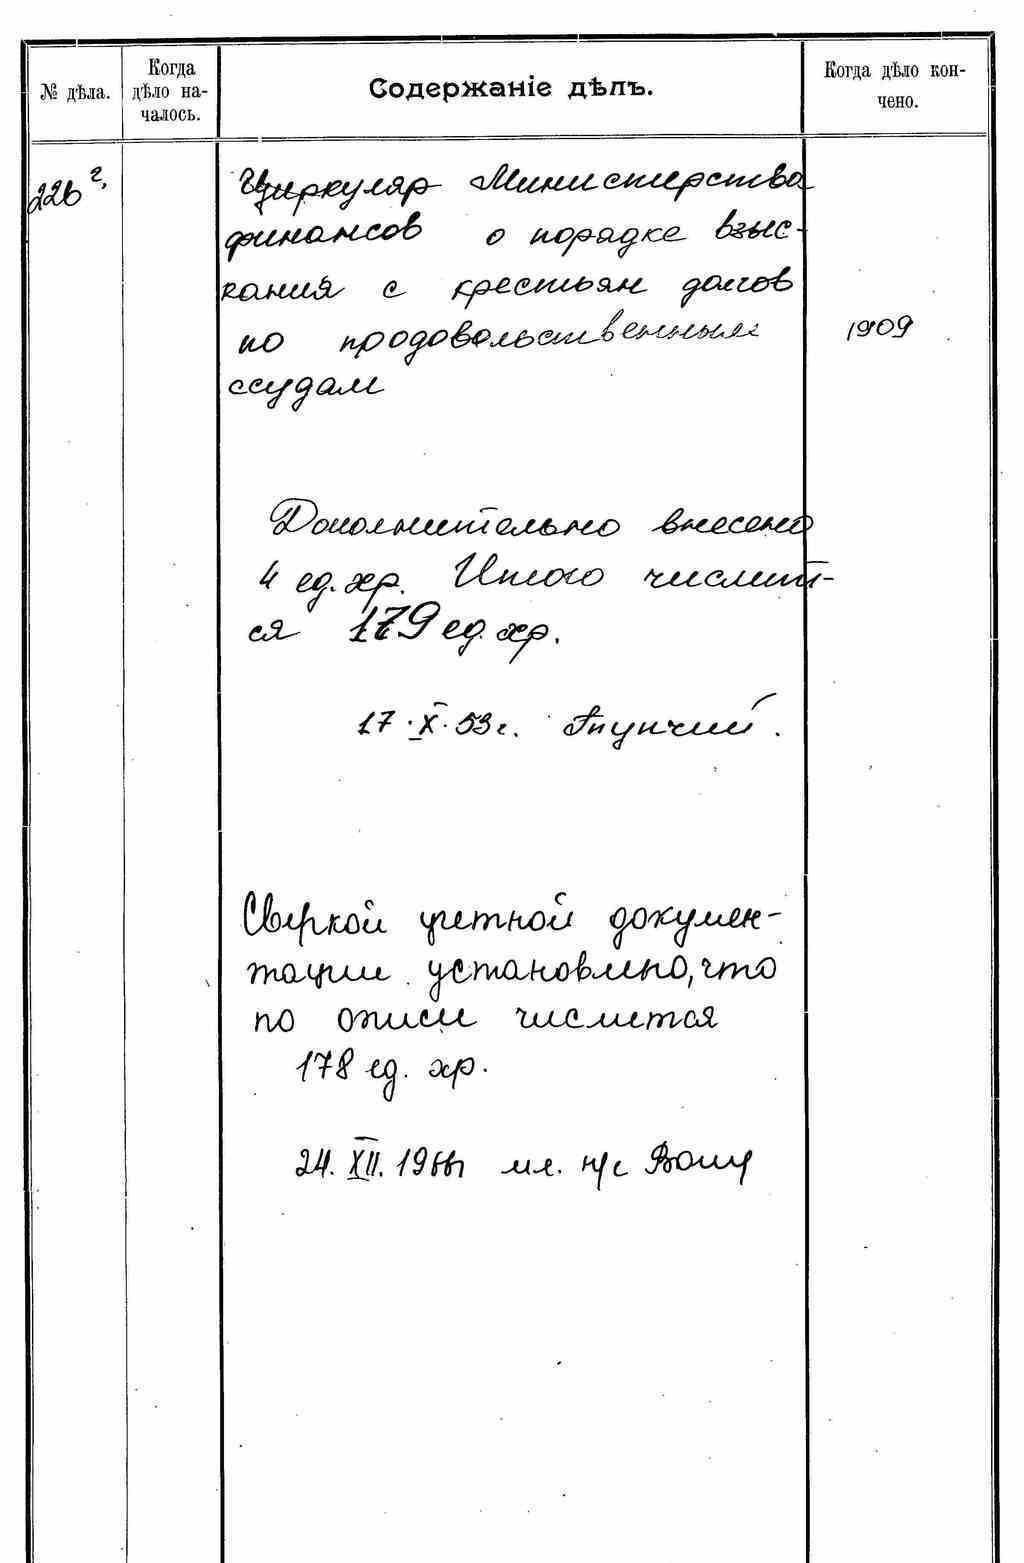 № дѣла.
Когда
дѣло на-
чалось.
Содержаніе дѣлъ.
Когда дѣло кон-
чено.
Циркуляр Министерства
финансов о порядке взыс-
кания с крестьян долгов
по продовольственным
1909
ссудам
Дополнительно внесено
4 ед. хр. Итого числит-
ся 179 ед. хр.
17.X.53 г.
Сверкой учетной докумен-
тации установлено, что
по описи числится
178 ед. хр.
24. XII. 1966 мл. н/с